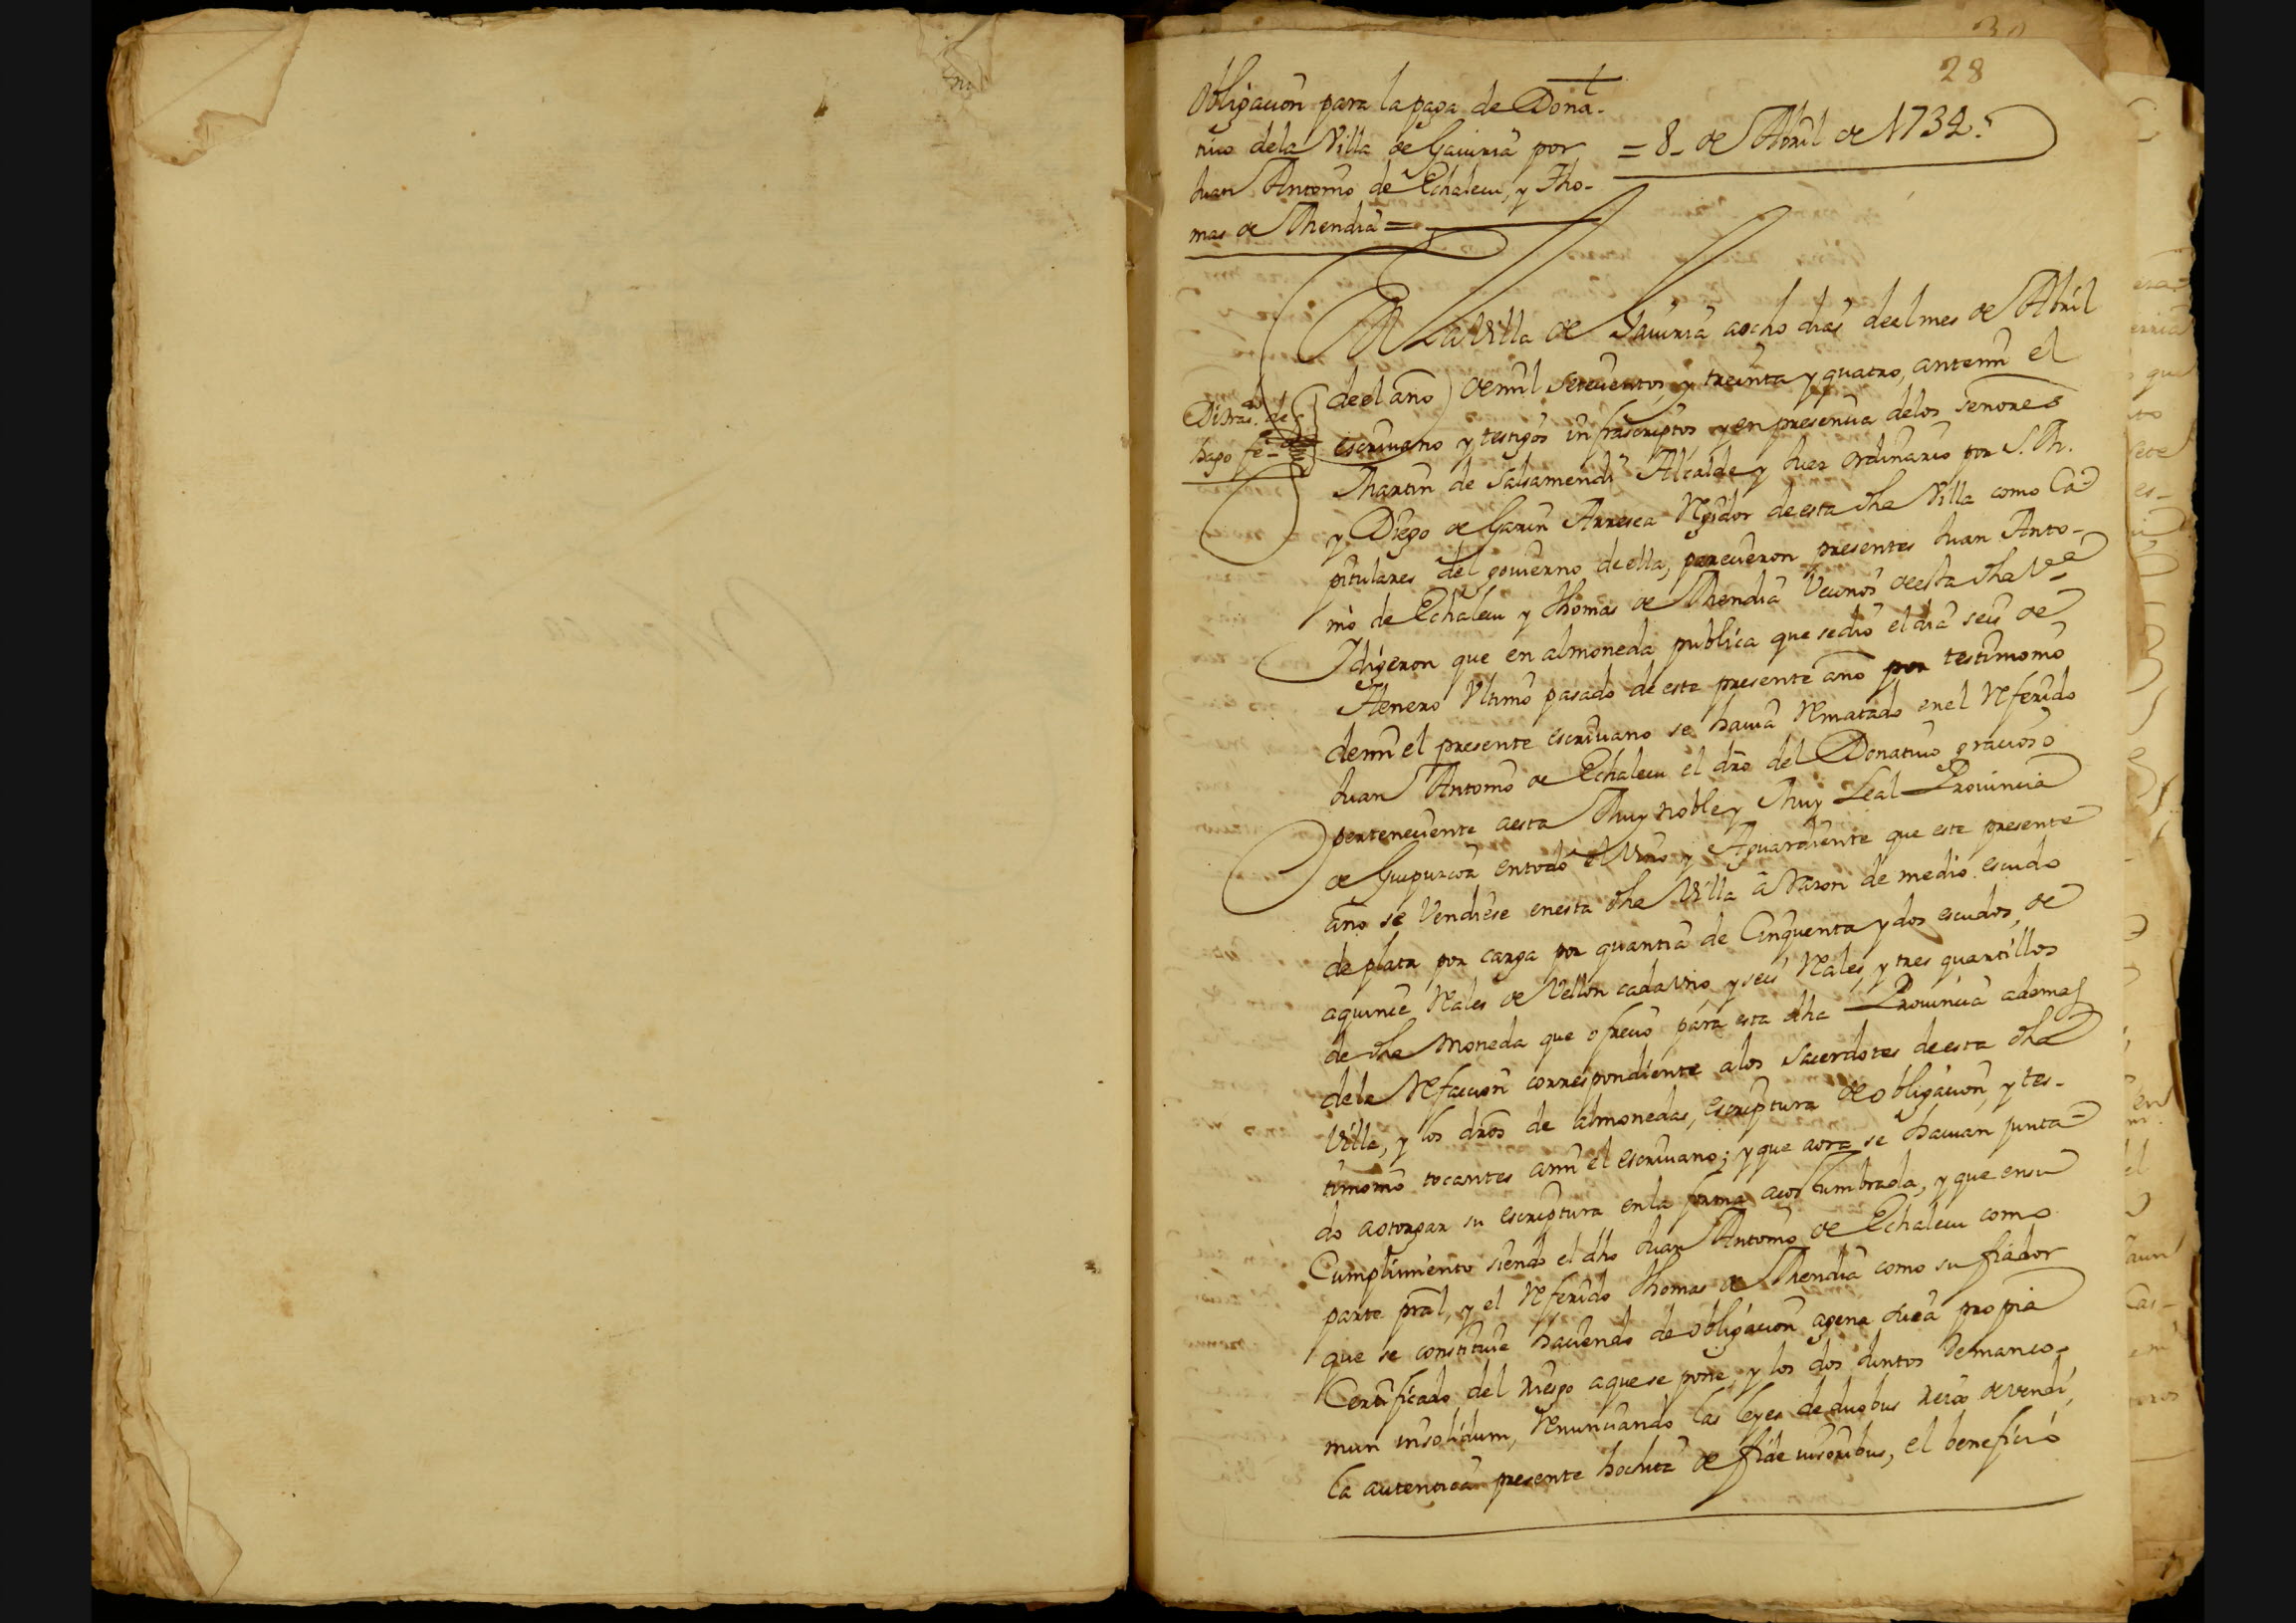 28
Obligacion para la paga de Dona-
tivo dela Villa de Gaviria por
Juan Antonio de Echalecu, y Tho-
mas de Mendia =
= 8 - de Abril de 1734.
En La Villa de Gaviria a ocho dias de el mes de Abril
de el año de mil setecientos, y treinta y quatro, ante mi el
escrivano y testigos infrascriptos, y en presencia delos señores
Martin de Salsamendi Alcalde y Juez ordinario por S. M.
y Diego de Garin Arresea Regidor de esta dha Villa como Ca-
pitulares del govierno de ella, parecieron presentes Juan Anto-
nio de Echalecu y Thomas de Mendia vecinos de esta dha Va
Y digeron que en almoneda publica que se dio el dia seis de
Henero ultimo pasado de este presente año por testimonio
de mi el presente escrivano se havia rematado en el referido
Juan Antonio de Echalecu el dro del Donativo gracioso
perteneciente a esta Muy Noble y Muy Leal Provincia
de Guipuzcoa en todo el vino y Aguardiente que este presente
año se vendiese en esta dha Villa a razon de medio escudo
de plata por carga por quantia de Cinquenta y dos escudos, de
a quince reales de vellon cada uno, y seis reales, y tres quartillos
de dha moneda que ofrecio para esta dha Provincia ademas
dela refaccion correspondiente a los sacerdotes de esta dha
Villa, y los dros de almonedas, escriptura de obligacion, y tes-
timonio tocantes a mi el escrivano; y que aora se havian junta-
do a otorgar su escriptura en la forma acostumbrada, y que en su
Cumplimiento siendo el dho Juan Antonio de Echalecu como
parte pral, y el referido Thomas de Mendia como su fiador
que se constituie haciendo de obligacion agena suia propia
Certificado del riesgo a que se pone, y los dos juntos de manco-
mun insolidum, renunciando las leyes de duobus reis devendi,
la autentica presente hochita de fide iusoribus, el beneficio
hago fe -